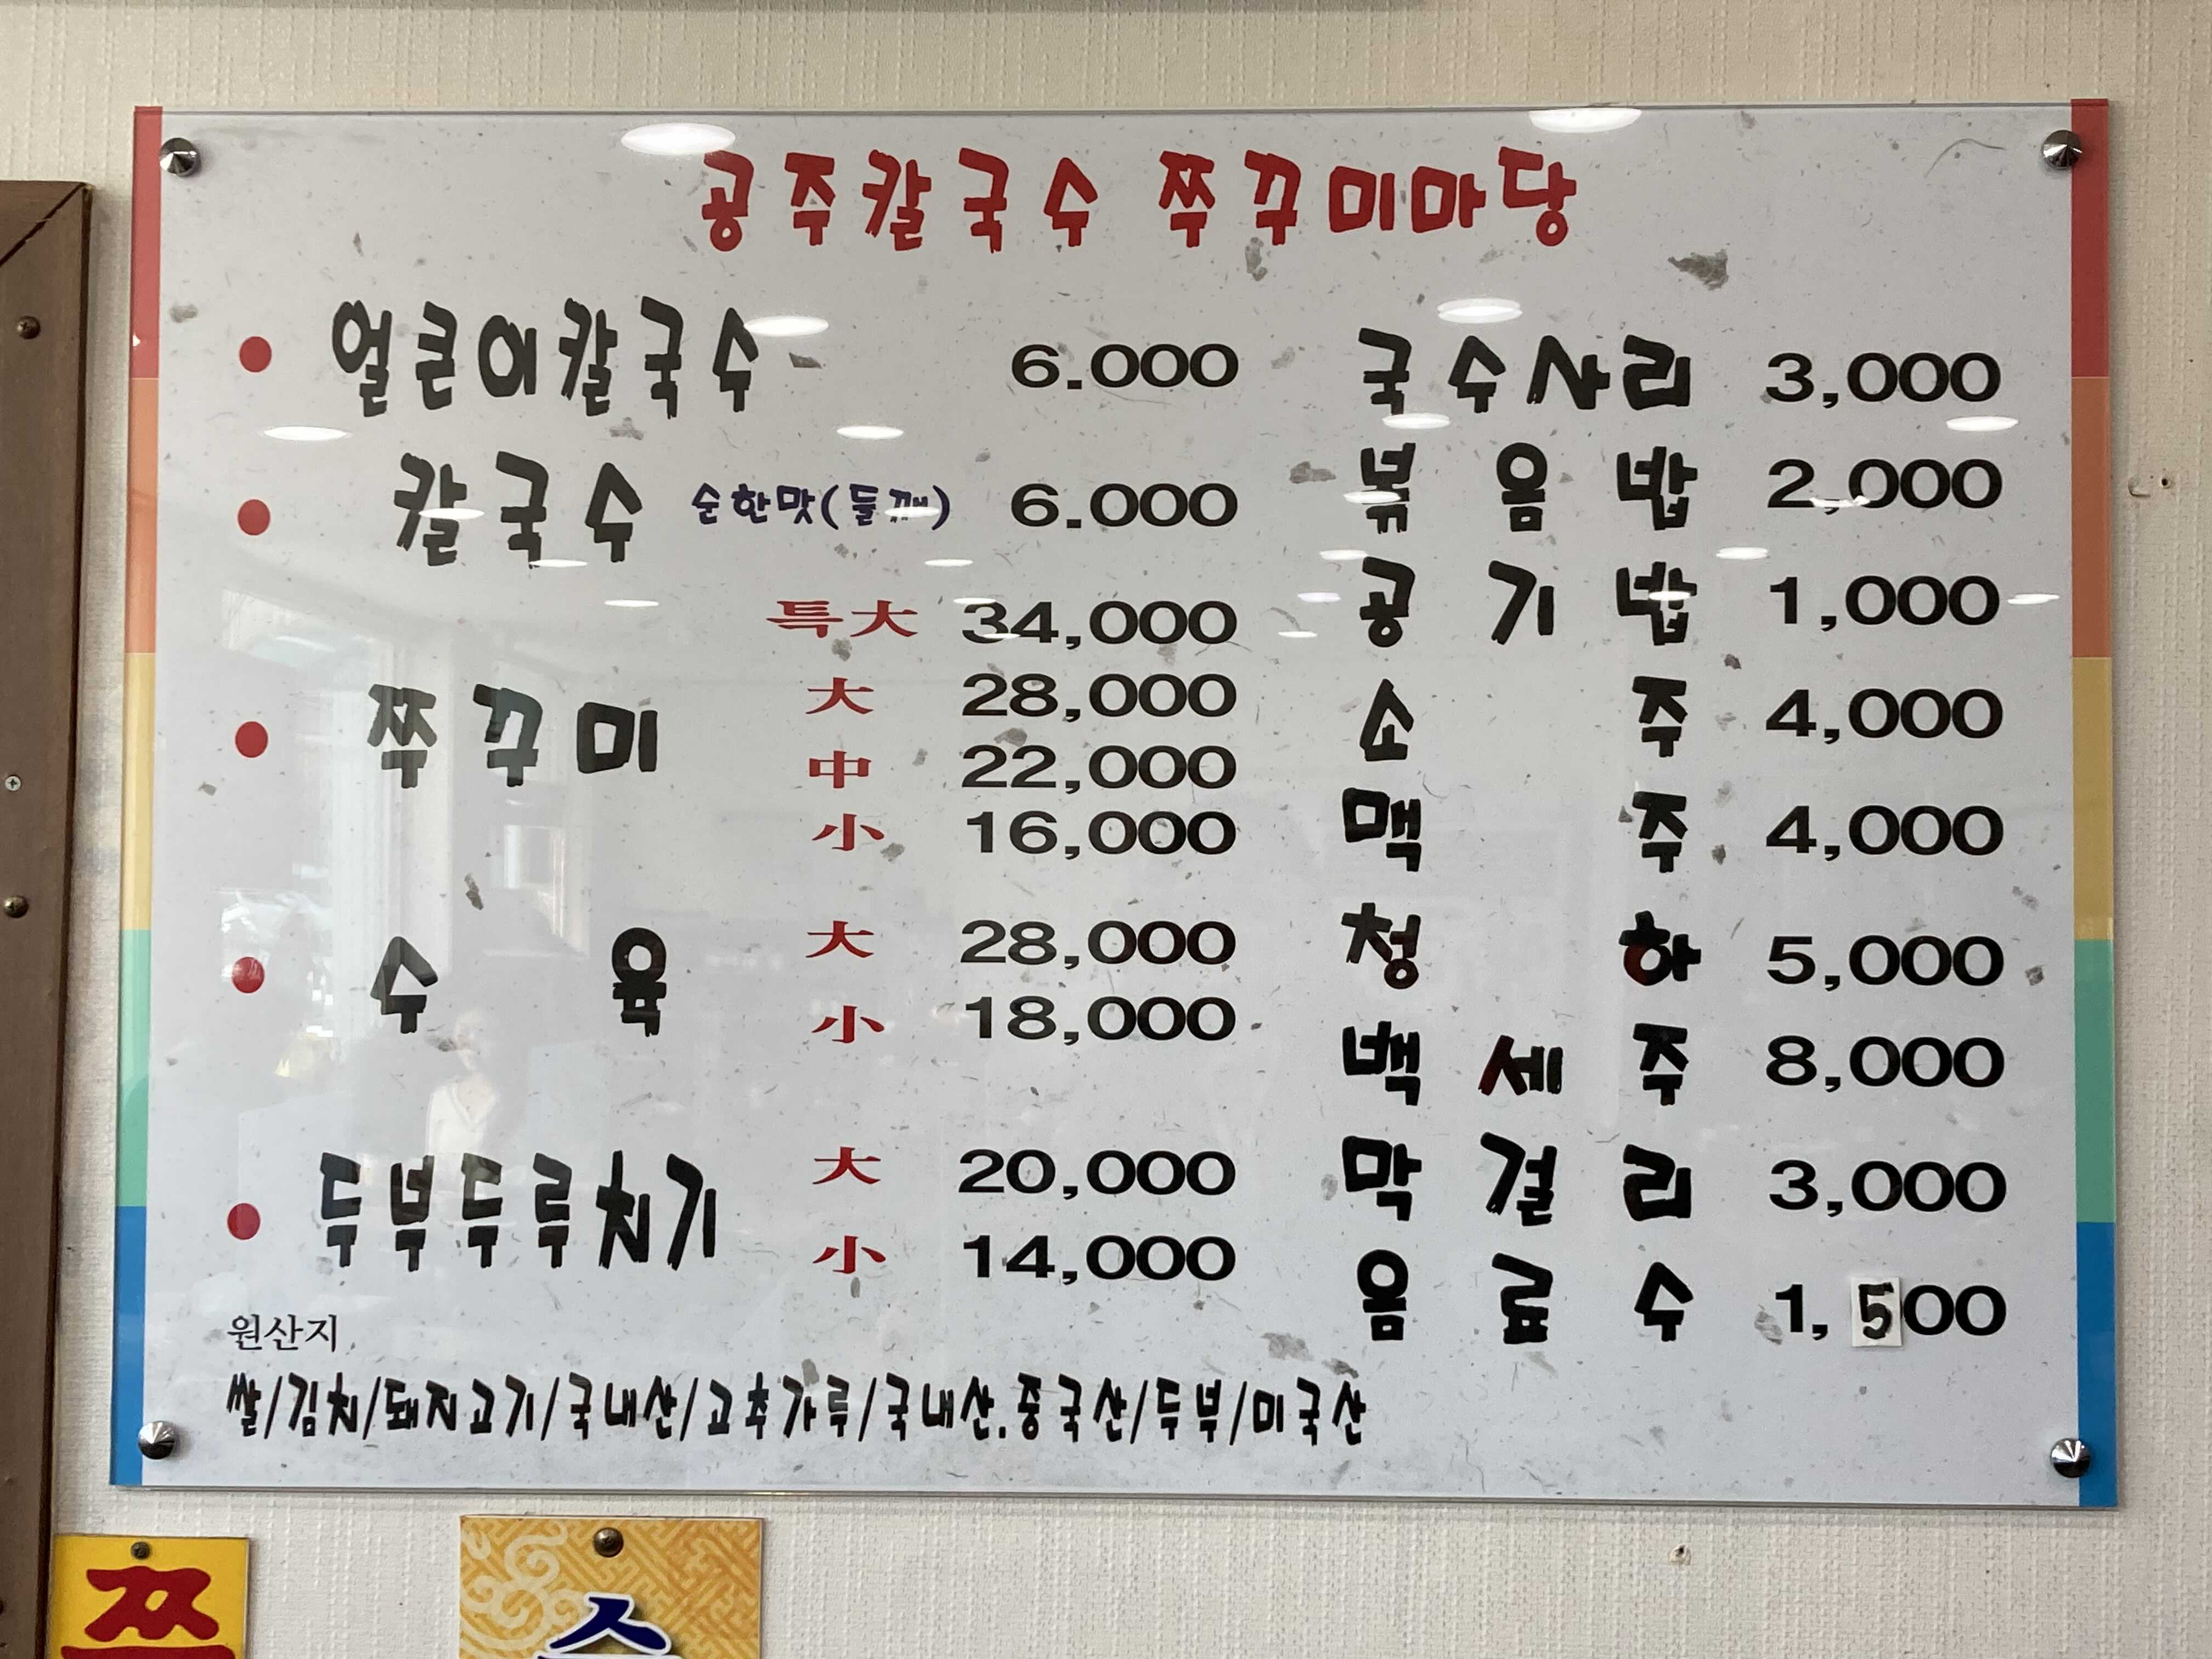 공주칼국수 쭈꾸미마당
얼큰이칼국수 6.000
칼국수 순한맛(들깨) 6.000
쭈꾸미 특大 34,000
大 28,000
中 22,000
小 16,000
수육 大 28,000
小 18,000
두부두루치기 大 20,000
小 14,000
국수사리 3,000
볶음밥 2,000
공기밥 1,000
소주 4,000
맥주 4,000
청하 5,000
백세주 8,000
막걸리 3,000
음료수 1,500
원산지
쌀/김치/돼지고기/국내산/고추가루/국내산.중국산/두부/미국산